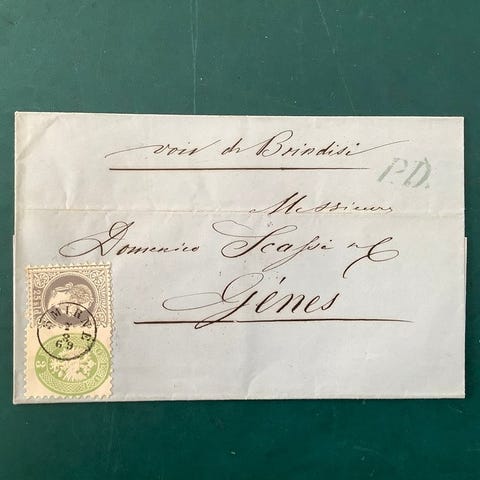 voie de Brindisi
P.D.
Messieurs
Domenico Scassi & C
Gênes
SMIRNE
2
3
69
3